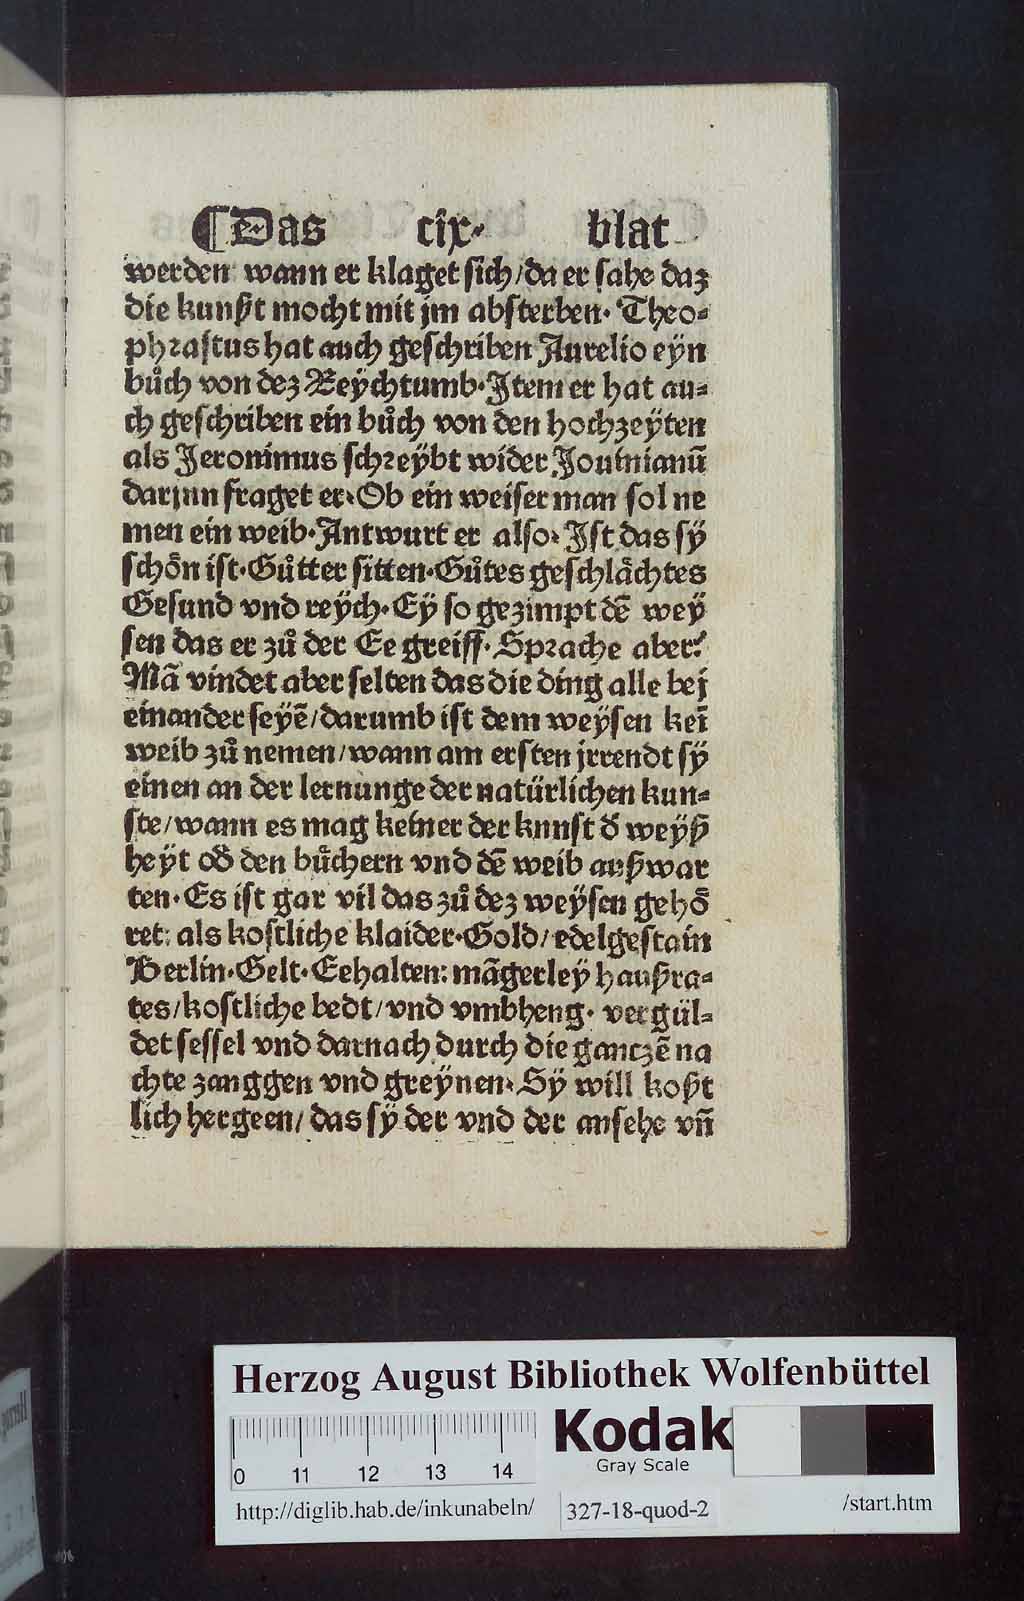 ¶Das cix· blat
werden: wann er klaget sich/da er sahe daz
die kunßt mocht mit jm absterben· Theo⸗
phrastus hat auch geschriben Aurelio eyn
bůch von dez Reÿchtumb·Item er hat au⸗
ch geschriben ein bůch von den hochzeÿten
als Jeronimus schreÿbt wider Jouinianū
darjnn fraget er·Ob ein weiser man sol ne
men ein weib·Antwurt er also· Ist das sÿ
schoͤn ist·Gůtter sitten·Gůtes geschlaͤchtes
Gesund vnd reÿch·Eÿ so gezimpt dē weÿ
sen das er zů der Ee greiff·Sprache aber:
Mā vindet aber selten das die ding alle bej
einander seÿē/darumb ist dem weÿsen keī
weib zů nemen/wann am ersten jrrendt sÿ
einen an der lernunge der natürlichen kun⸗
ste/wann es mag keiner der knnst d̕ weÿß
heÿt od̕ den bůchern vnd dē weib außwar
ten·Es ist gar vil das zů dez weÿsen gehoͤ
ret: als kostliche klaider·Gold/edelgestain
Berlin·Gelt·Eehalten: māgerleÿ haußra⸗
tes/kostliche bedt/vnd vmbheng· vergül⸗
det sessel vnd darnach durch die gantzē na
chte zanggen vnd greÿnen· Sÿ will koßt
lich hergeen/das sÿ der vnd der ansehe vn̄
Herzog August Bibliothek Wolfenbüttel
0 11 12 13 14
Kodak
Gray Scale
http://diglib.hab.de/inkunabeln/
327-18-quod-2
/start.htm